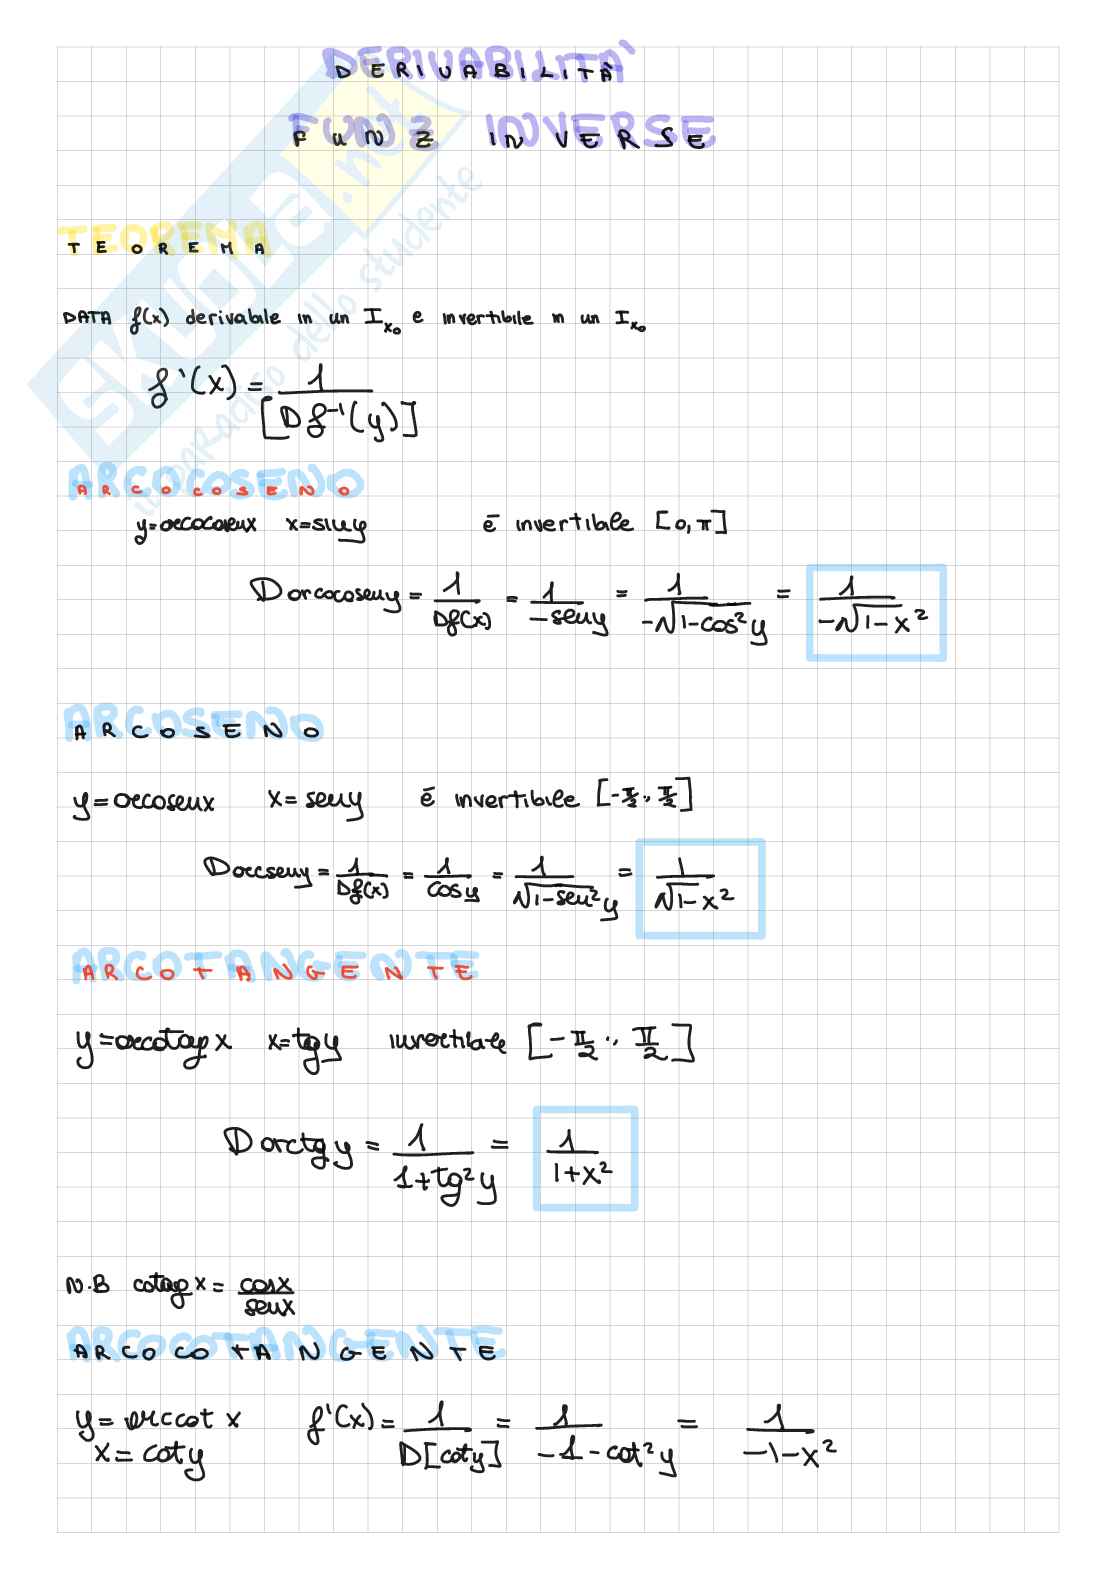 DERIVABILITÀ
FUNZ INVERSE
TEOREMA
DATA f(x) derivabile in un I_{x₀} e invertibile in un I_{x₀}
f'(x) = 1/[D f⁻¹(y)]
ARCOCOSENO
y=arcocosenx x=sin y è invertibile [0,π]
D arcocosen y = 1/Df(x) = 1/-sen y = 1/-√1-cos² y = 1/-√1-x²
ARCOSENO
y=arcosenx x=sen y è invertibile [-π/2 ; π/2]
D arcsen y = 1/Df(x) = 1/cos y = 1/√1-sen² y = 1/√1-x²
ARCOTANGENTE
y=arcotag x x=tg y invertibile [-π/2 ; π/2]
D arctg y = 1/1+tg² y = 1/1+x²
N.B cotag x = cosx/senx
ARCOCOTANGENTE
y= arccot x f'(x) = 1/D[cot y] = 1/-1-cot² y = 1/-1-x²
x= cot y
SKUOLA.net
il paradiso dello studente